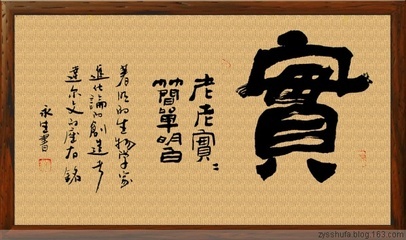 實
老老實〻
簡單明白
著名的生物学家
進化論的創造者
達尔文的座右銘
永生書
zysshufa.blog.163.com